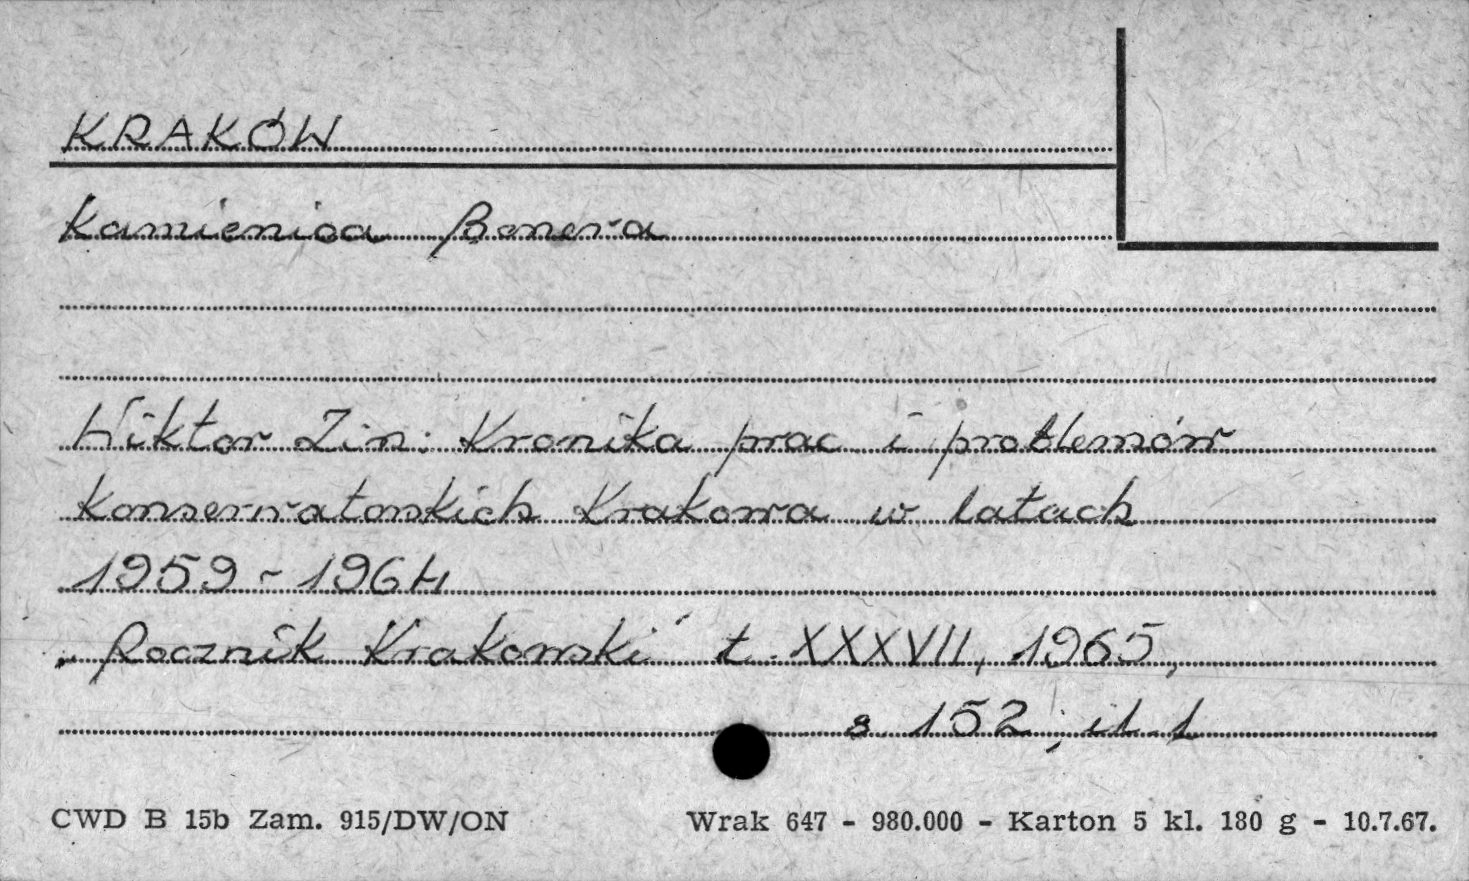 KRAKÓW
Kamienica Bonera
Wiktor Zin: Kronika prac i problemów
konserwatorskich Krakowa w latach
1959 - 1964
"Rocznik Krakowski" t. XXXVII, 1965,
s 152, il. 1
CWD B 15b Zam. 915/DW/ON Wrak 647 - 980.000 - Karton 5 kl. 180 g - 10.7.67.